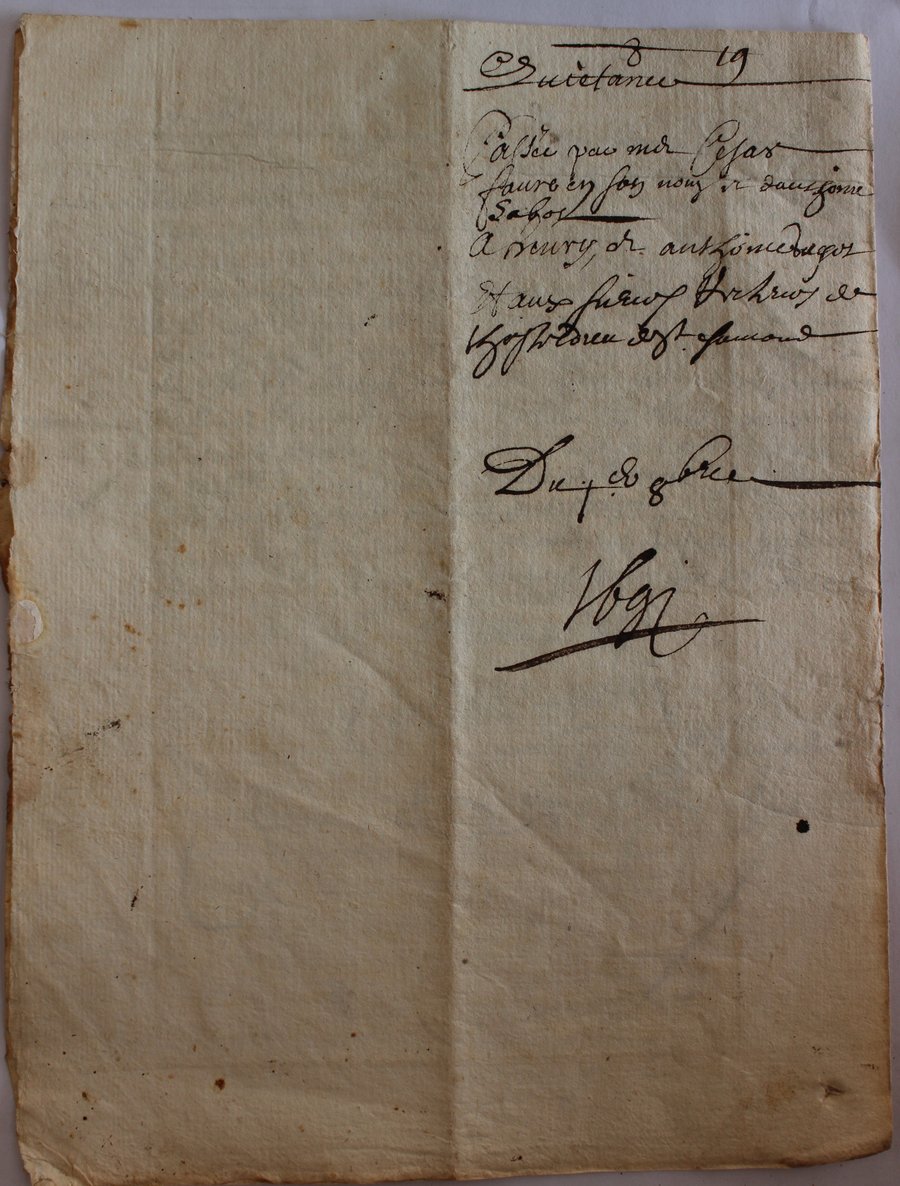 8 19
Quictance
Passée par mr Cesar
faure en son nom et d'anthoine
Sabot
A heury, et anthoine
Et aux sieurs Recteurs de
l'hostel dieu de st chamond
Du 4 de 8bre